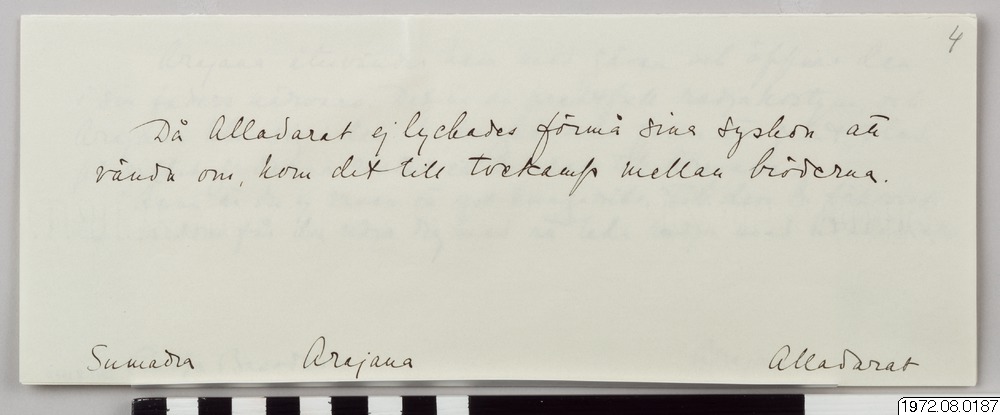 4
Då Alladarat ej lyckades förmå sina syskon att
vända om, kom det till tvekamp mellan bröderna.
Sumadra Arajana Alladarat
1972.08.0187